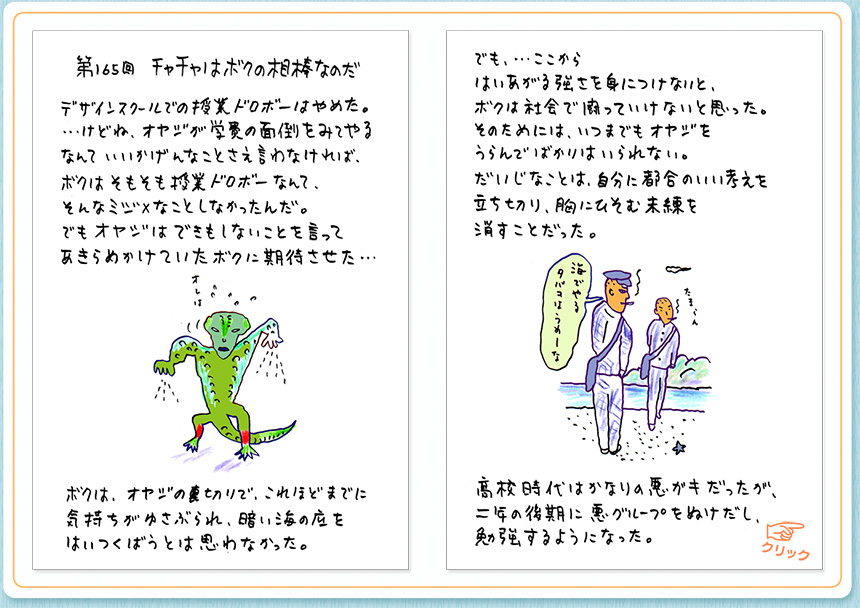 第165回 チャチャはボクの相棒なのだ
デザインスクールでの授業ドロボーはやめた。
…けどね、オヤジが学費の面倒をみてやる
なんていいかげんなことさえ言わなければ、
ボクはそもそも授業ドロボーなんて、
そんなミジメなことしなかったんだ。
でもオヤジはできもしないことを言って
あきらめかけていたボクに期待させた…
オレは
ボクは、オヤジの裏切りで、これほどまでに
気持ちがゆさぶられ、暗い海の底を
はいつくばうとは思わなかった。
でも、…ここから
はいあがる強さを身につけないと、
ボクは社会で闘っていけないと思った。
そのためには、いつまでもオヤジを
うらんでばかりはいられない。
だいじなことは、自分に都合のいい考えを
立ち切り、胸にひそむ未練を
消すことだった。
海でやる
タバコはうめーな
たまらん
高校時代はかなりの悪ガキだったが、
二年の後期に悪グループをぬけだし、
勉強するようになった。
クリック